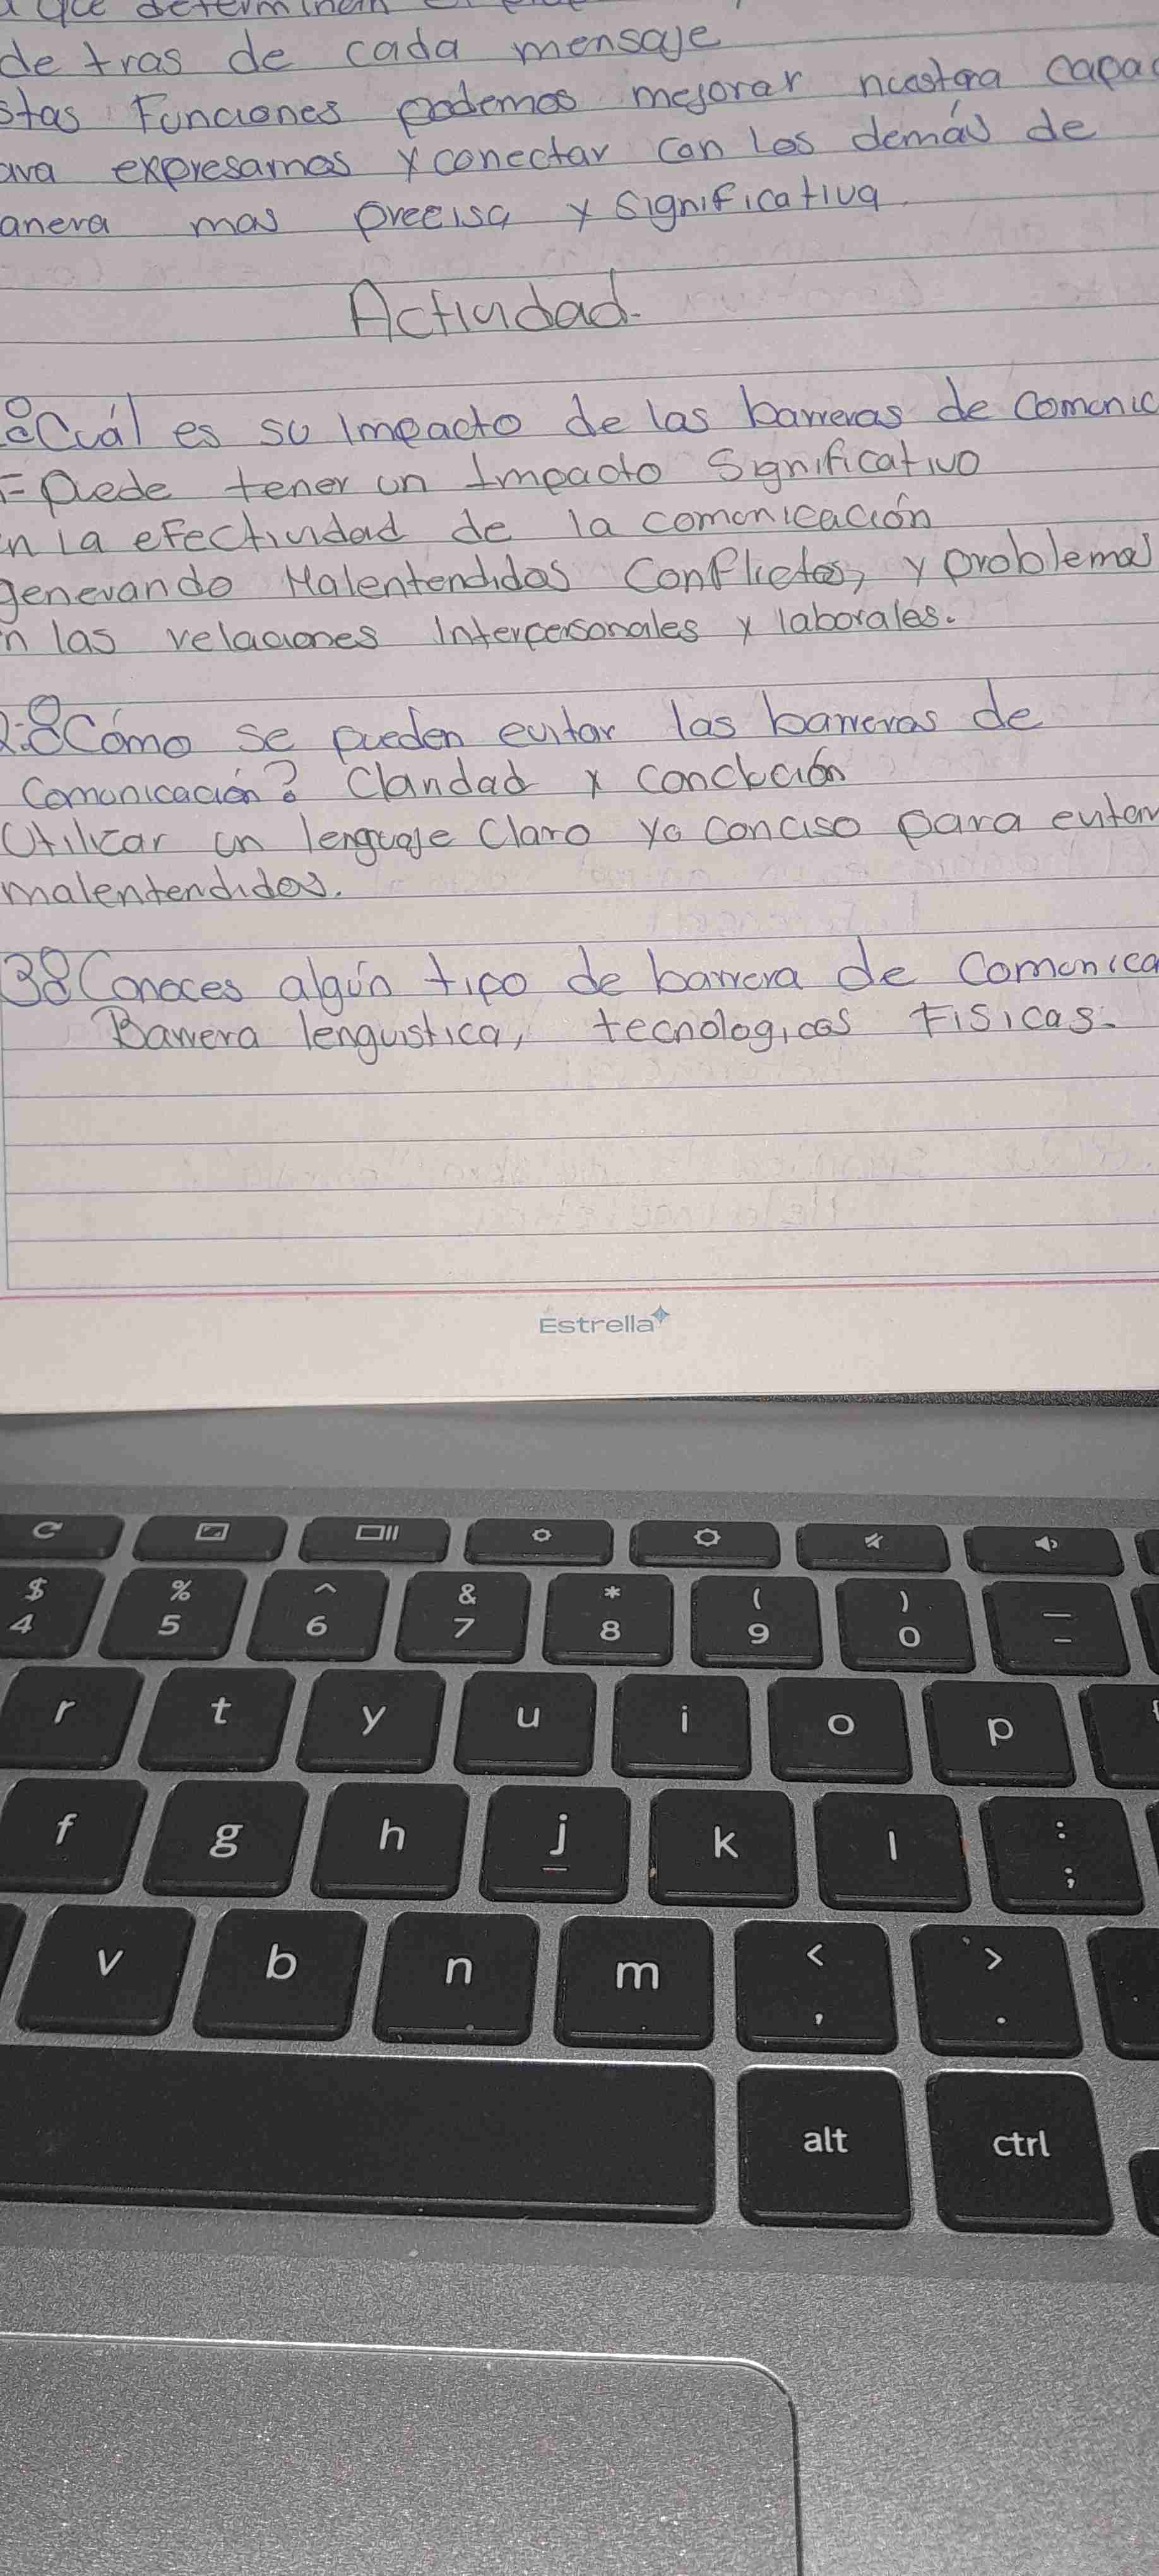 de tras de cada mensaje
stas Funciones podemos mejorar nuestra capac
ara expresarnos y conectar con los demás de
anera mas precisa y significativa
Actividad.
¿Cuál es su Impacto de las barreras de comunic
= puede tener un Impacto Significativo
n la efectividad de la comunicación
generando Malentendidos Conflictos, y problemas
n las relaciones Interpersonales y laborales.
2.¿Cómo se pueden evitar las barreras de
Comunicación? Claridad y
Utilizar un lenguaje Claro yo conciso para evitar
malentendidos.
3¿Conoces algún tipo de barrera de Comunica
Barrera lenguistica, tecnologicas Fisicas.
Estrella
$ % ^ & * ( ) —
4 5 6 7 8 9 0 -
r t y u i o p
f g h j k l : ;
v b n m < , > .
alt ctrl